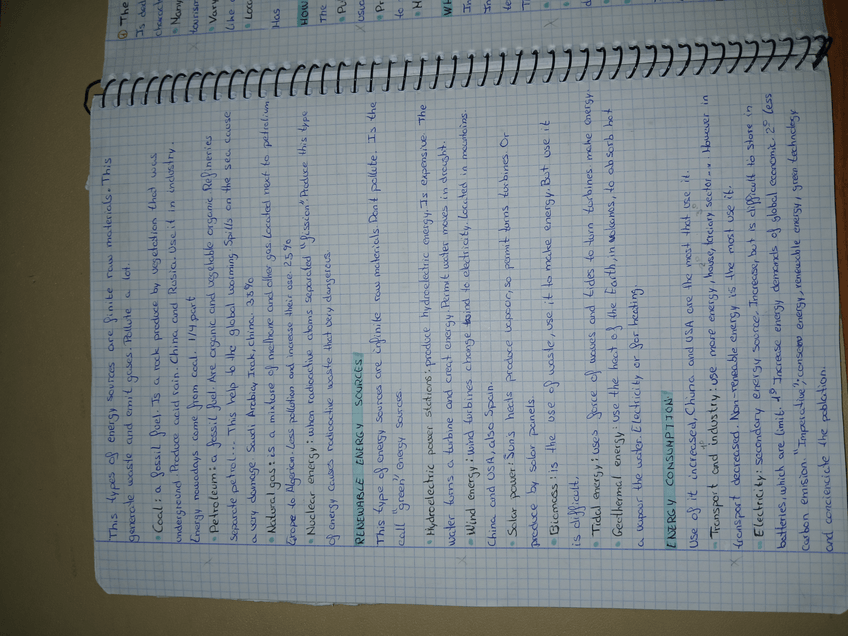 ① The
Is ded
charact
• Many
tourism
• Vary
like
• Loca
Has
HOW
The
• Pu
usua
• Pr
to
• H
WH
In
In
te
T
This types of energy sources are finite raw materials. This
generate waste and emit gases. Pollute a lot.
• Coal: a fossil fuel. Is a rock produce by vegetation that was
underground. Produce acid rain. China and Rusia. Use it in industry.
Energy nowadays come from coal. 1/4 part
• Petroleum: a fossil fuel. Are organic and vegetable organic. Refineries
separate petrol... This help to the global warming. Spills on the sea cause
a very damage. Saudi Arabia, Irak, china. 33%
• Natural gas: is a mixture of methane and other gas located next to petroleum
Grope to Algerian. Less pollution and increase their use. 25%
• Nuclear energy: when radioactive atoms separated "fission" Produce this type
of energy causes radioactive waste that very dangerous.
RENEWABLE ENERGY SOURCES
This type of energy sources are infinite raw materials. Dont pollute. Is the
call "green" energy sources.
• Hydroelectric power stations: produce hydroelectric energy. Is expensive. The
water turns a turbine and creat energy. Permit water moves in drought.
• Wind energy: wind turbines change wind to electricity. Located in mountains.
China and USA, also Spain.
• Solar power: Suns heats produce vapour, so permit turns turbines. Or
produce by solar panels.
• Biomass: is the use of waste, use it to make energy. But use it
is difficult.
• Tidal energy: uses force of waves and tides to turn turbines make energy
• Geothermal energy: use the heat of the Earth, in volcanos, to absorb hot
a vapour the water. Electricity or for heating
ENERGY CONSUMPTION
Use of it increased, China and USA are the most that use it.
• Transport and industry: use more energy, house, terciary sector... However in
transport decreased. Non-reneable energy is the most use it.
• Electricity: secondary energy source. Increase, but is difficult to store in
batteries, which are limit. 1º Increase energy demands of global economic. 2º Less
carbon emission. "Imperative"; conserve energy, reneable energy, green technology
and concienciate the poblation.